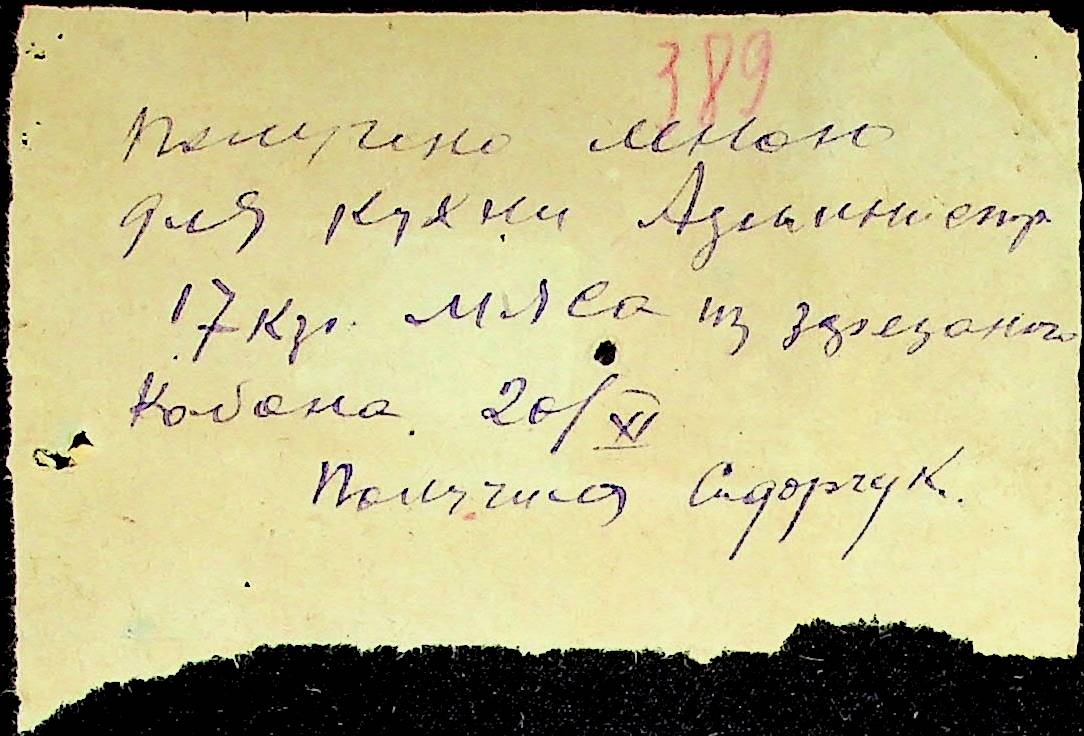 389
Получено мною
для кухни Администр
17 кгр. мяса из зарезаного
Кабана. 20/XI
Получила Сидорчук.